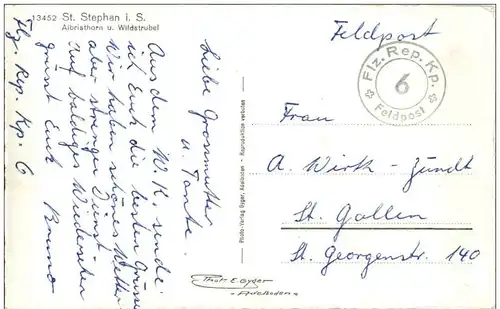 13452 St. Stephan i. S.
Albristhorn u. Wildstrubel
Liebe Grossmutter
u. Tante.
Aus dem W.K. sende
ich Euch die besten Grüsse.
Wir haben schönes Wetter
aber strenger Dienst.
Auf baldiges Wiedersehen
grüsst Euch Bruno
Flz. Rep. Kp. 6
Photo-Verlag Gyger, Adelboden - Reproduktion verboten
Phot. E. Gyger
Adelboden
Feldpost
Flz. Rep. Kp.
6
Feldpost
Frau
A. Wirth-Zündt
St. Gallen
St. Georgenstr. 140